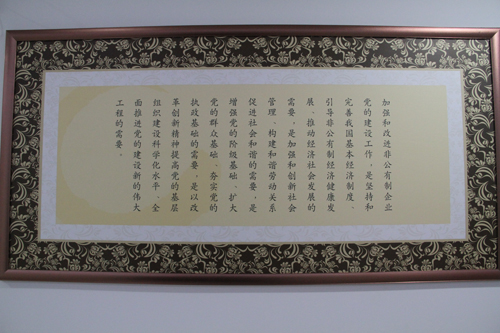 加强和改进非公有制企业
党的建设工作，是坚持和
完善我国基本经济制度、
引导非公有制经济健康发
展、推动经济社会发展的
需要，是加强和创新社会
管理、构建和谐劳动关系、
促进社会和谐的需要，是
增强党的阶级基础、扩大
党的群众基础、夯实党的
执政基础的需要，是以改
革创新精神提高党的基层
组织建设科学化水平、全
面推进党的建设新的伟大
工程的需要。